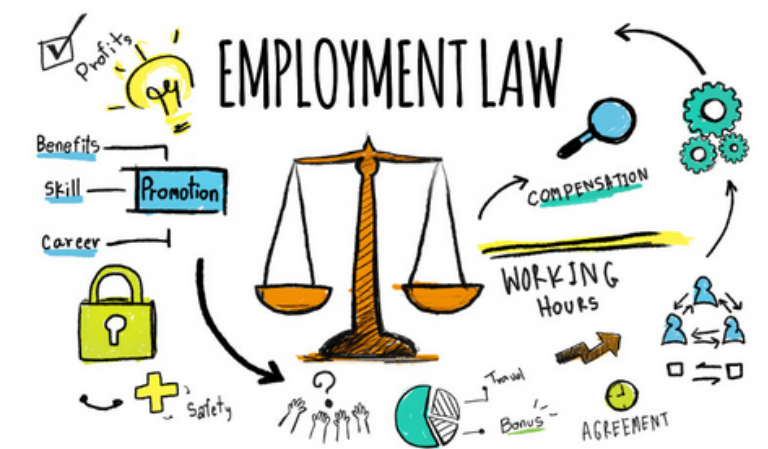 Profits
EMPLOYMENT LAW
Benefits
Skill
Career
Promotion
COMPENSATION
WORKING
HOURS
Safety
?
Travel
Bonus
AGREEMENT